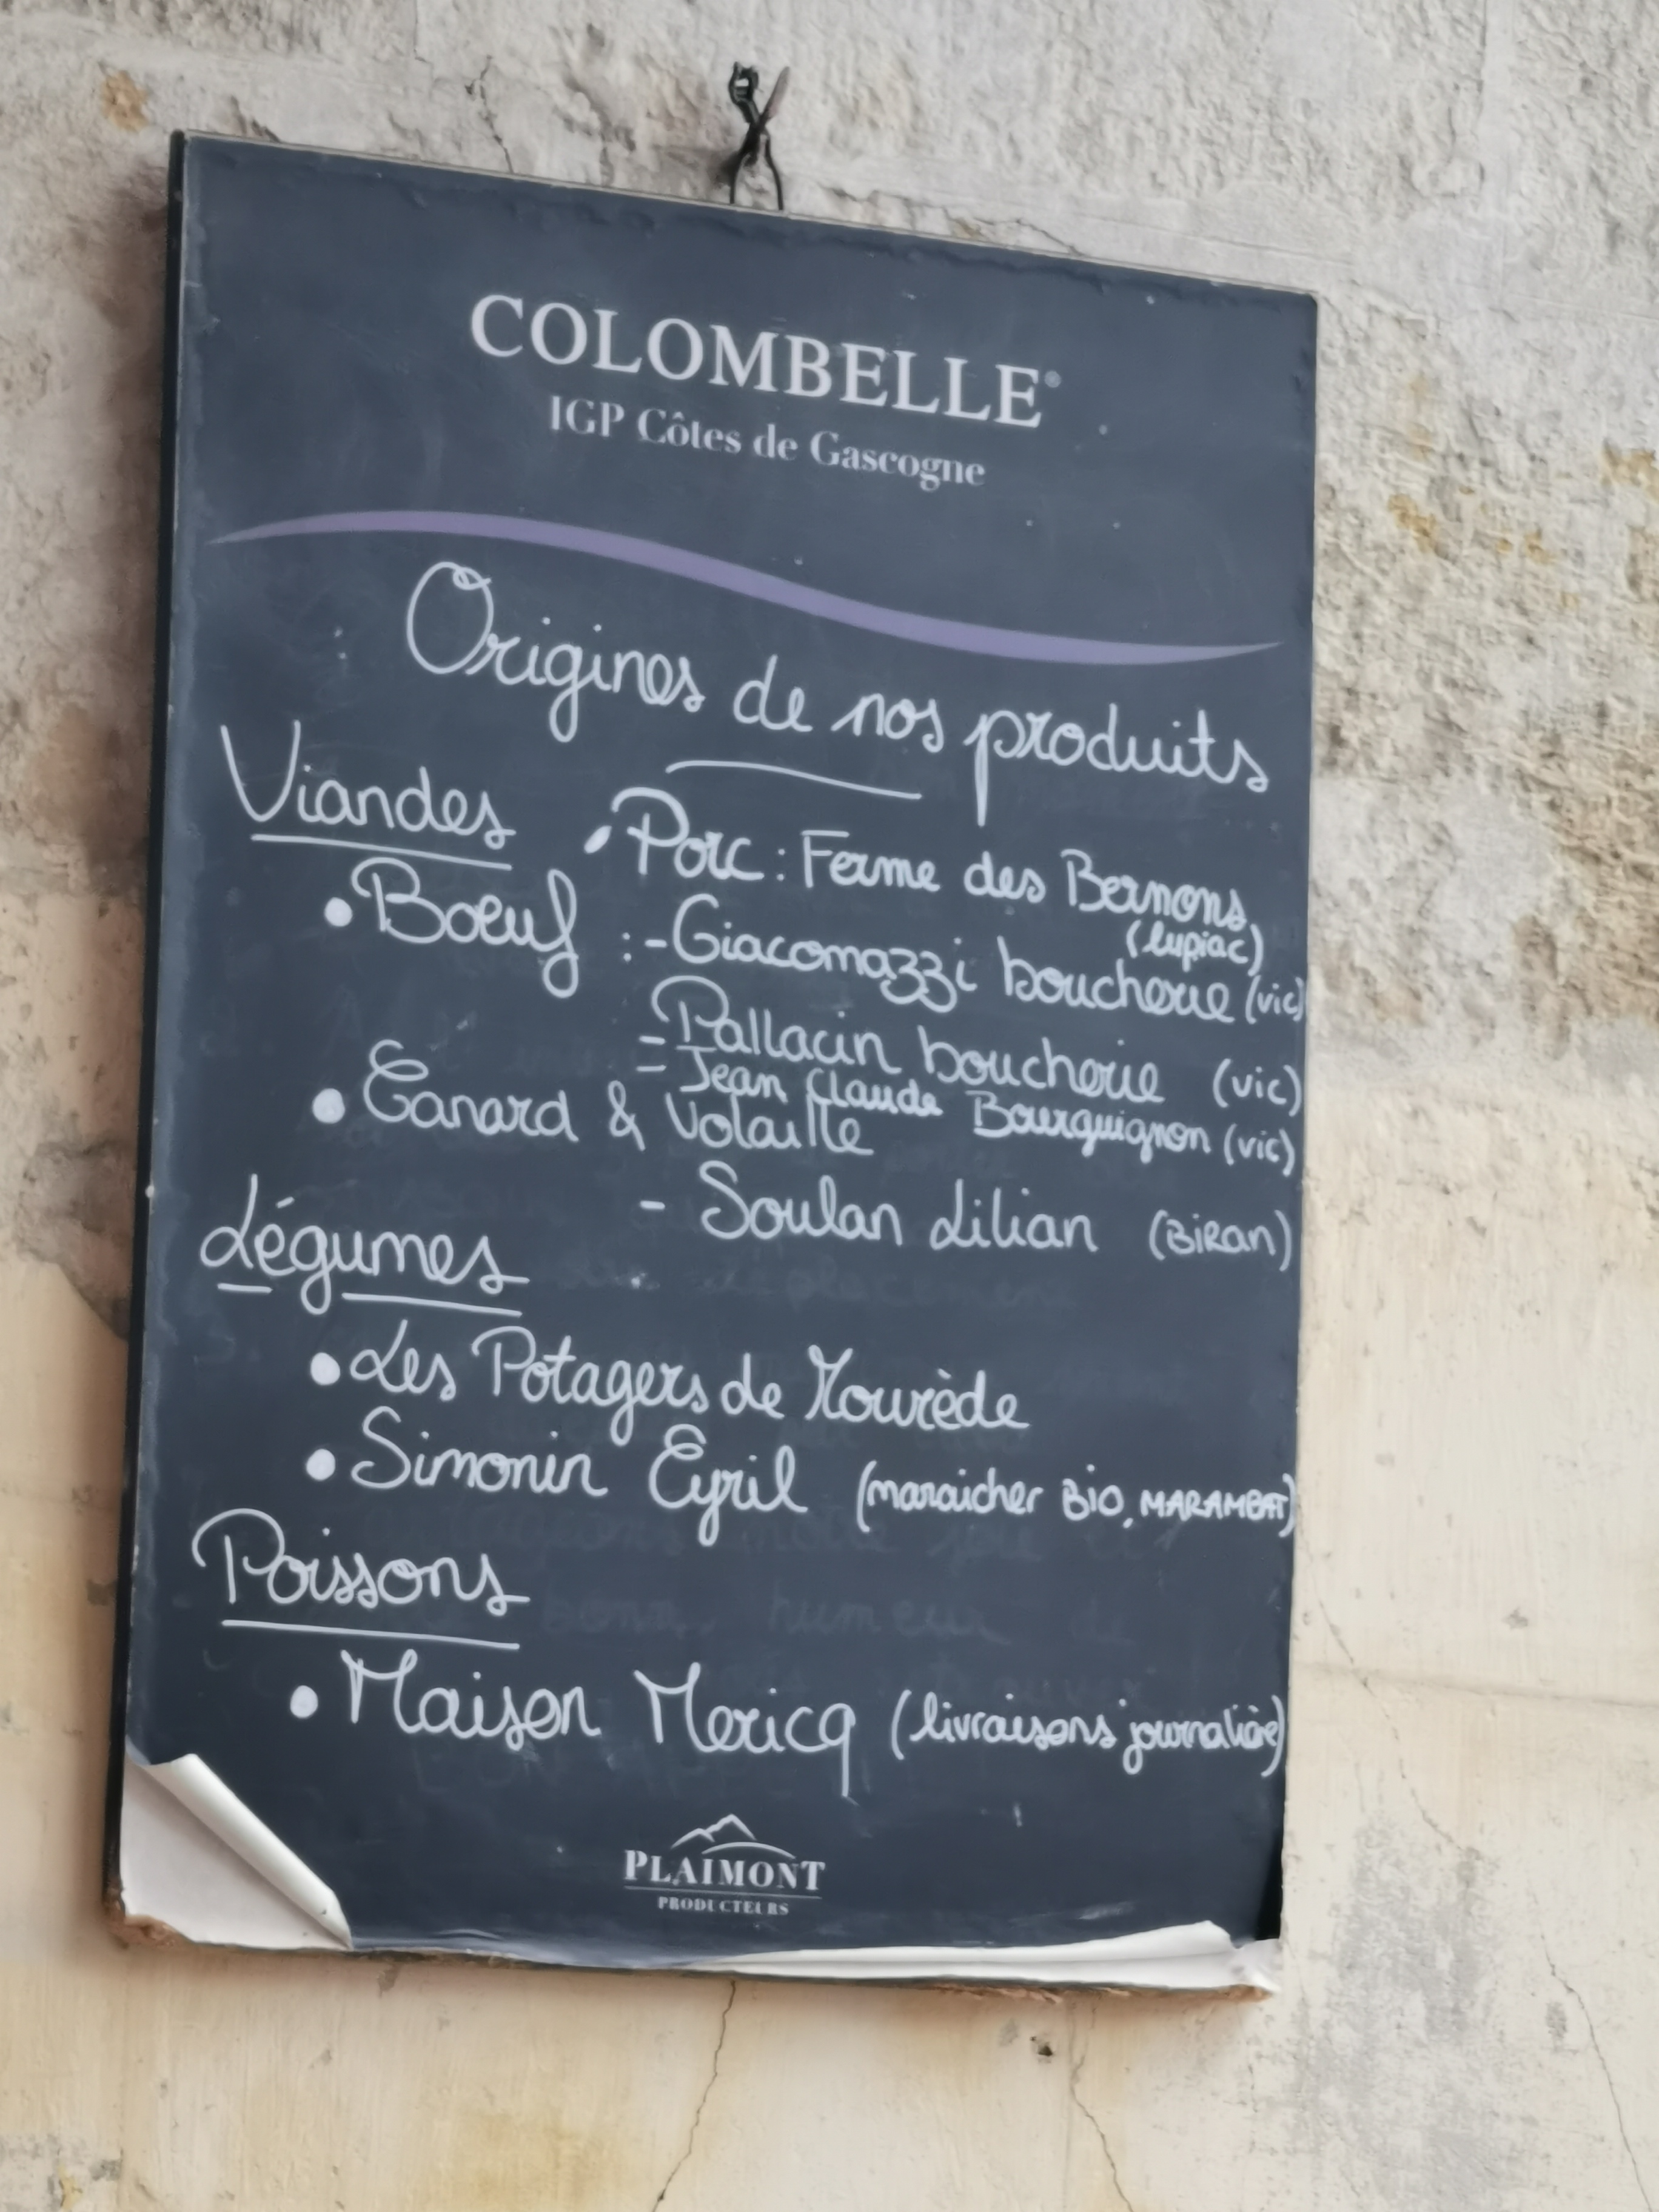 COLOMBELLE®
IGP Côtes de Gascogne
Origines de nos produits
Viandes
• Porc : Ferme des Bernons
(lupiac)
• Boeuf : - Giacomazzi boucherie (vic)
- Pallacin boucherie (vic)
- Jean Claude Bourguignon (vic)
• Canard & Volaille
- Soulan Lilian (BiRan)
Légumes
• Les Potagers de Mourède
• Simonin Cyril (maraicher BiO, MARAMBAT)
Poissons
• Maison Mericq (livraisons journalière)
PLAIMONT
PRODUCTEURS